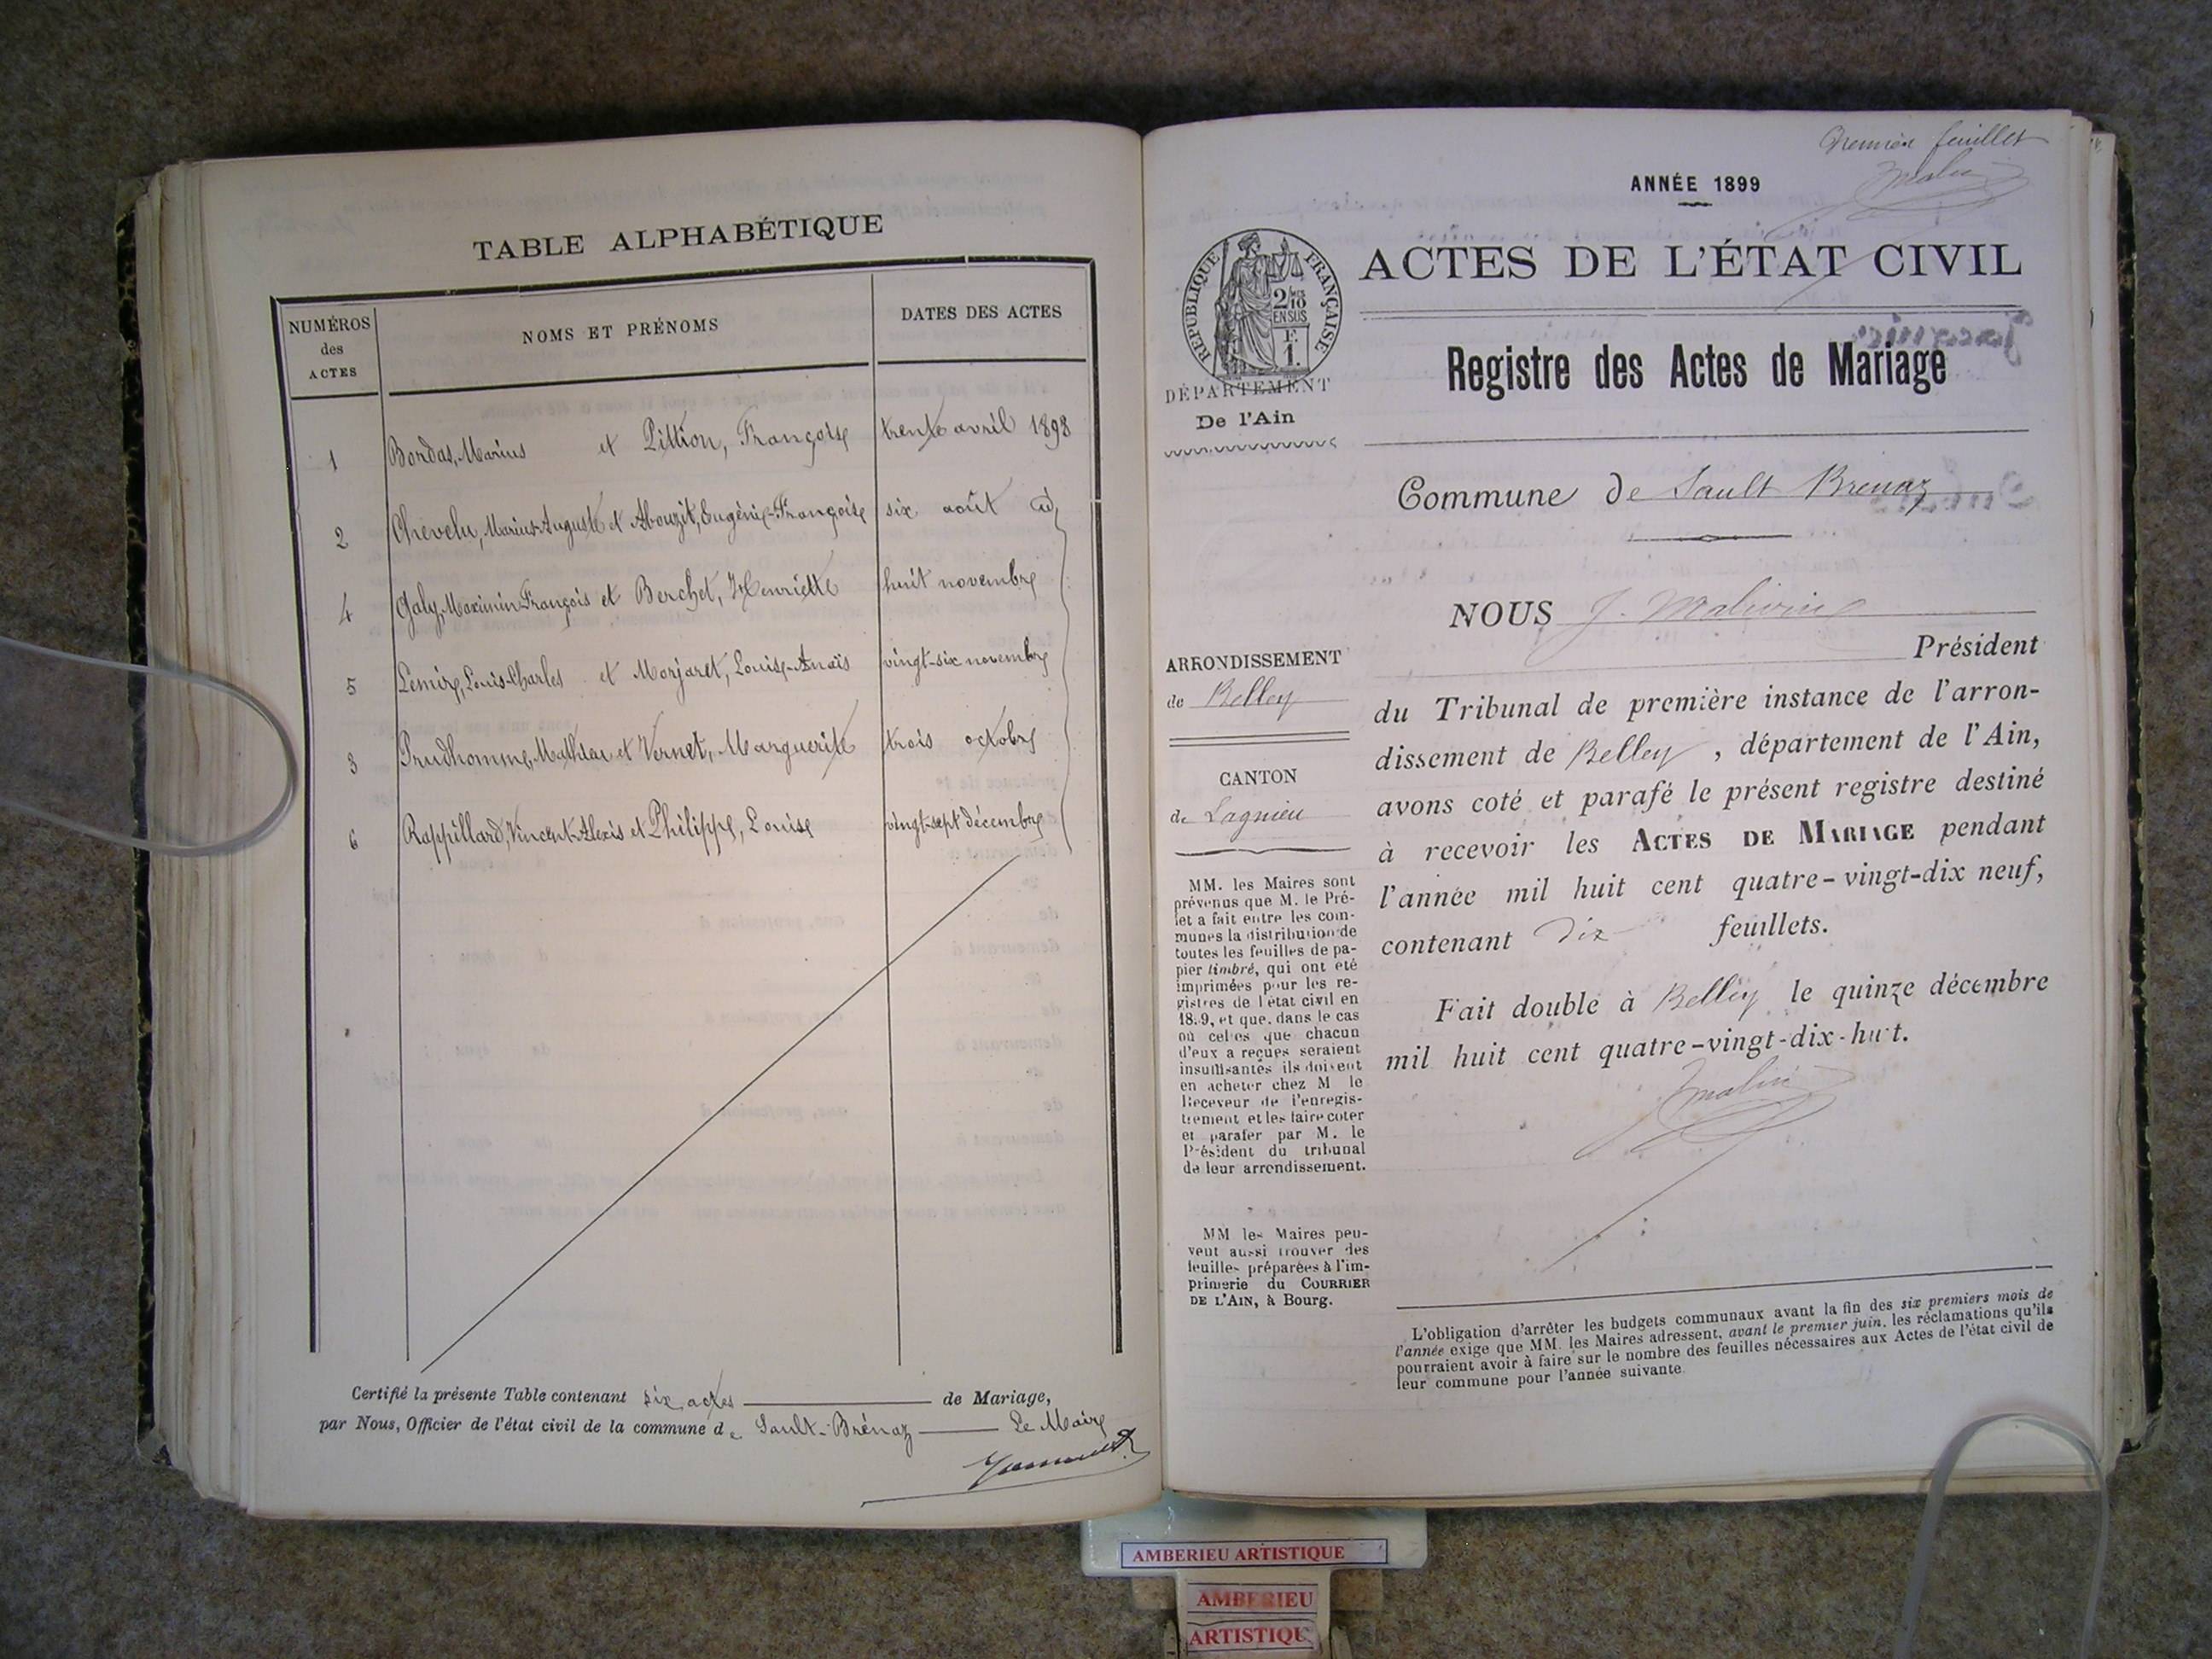 TABLE ALPHABÉTIQUE
NUMÉROS
des
ACTES
NOMS ET PRÉNOMS
DATES DES ACTES
1 Bordas, Marius et Pittion, Françoise trente avril 1898
2 Chevelu, Marius-Auguste et Abouzit, Eugénie-Françoise six août id
4 Galy, Maximin François et Berchet, Henriette huit novembre
5 Lemire, Louis-Charles et Morjaret, Louise-Anaïs vingt-six novembre
3 Prudhomme, Mathieu et Vernet, Marguerite trois octobre
6 Rappillard, Vincent-Alexis et Philippe, Louise vingt-sept décembre
Certifié la présente Table contenant six actes de Mariage,
par Nous, Officier de l'état civil de la commune de Sault-Brénaz Le Maire
Premier feuillet
ANNÉE 1899
ACTES DE L'ÉTAT CIVIL
RÉPUBLIQUE FRANÇAISE
2/10ES
EN SUS
F.
1.
DÉPARTEMENT
De l'Ain
Registre des Actes de Mariage
Commune de Sault Brenaz
NOUS J.
Président
ARRONDISSEMENT
de Belley
CANTON
de Lagnieu
du Tribunal de première instance de l'arron-
dissement de Belley, département de l'Ain,
avons coté et parafé le présent registre destiné
à recevoir les ACTES DE MARIAGE pendant
l'année mil huit cent quatre-vingt-dix neuf,
contenant dix feuillets.
Fait double à Belley le quinze décembre
mil huit cent quatre-vingt-dix-huit.
MM. les Maires sont
prévenus que M. le Pré-
fet a fait entre les com-
munes la distribution de
toutes les feuilles de pa-
pier timbré, qui ont été
imprimées pour les re-
gistres de l'état civil en
1899, et que, dans le cas
où celles que chacun
d'eux a reçues seraient
insuffisantes ils doivent
en acheter chez M le
Receveur de l'enregis-
trement et les faire coter
et parafer par M. le
Président du tribunal
de leur arrondissement.
MM les Maires peu-
vent aussi trouver des
feuilles préparées à l'im-
primerie du COURRIER
DE L'AIN, à Bourg.
L'obligation d'arrêter les budgets communaux avant la fin des six premiers mois de
l'année exige que MM. les Maires adressent, avant le premier juin, les réclamations qu'ils
pourraient avoir à faire sur le nombre des feuilles nécessaires aux Actes de l'état civil de
leur commune pour l'année suivante.
AMBERIEU ARTISTIQUE
AMBERIEU
ARTISTIQUE